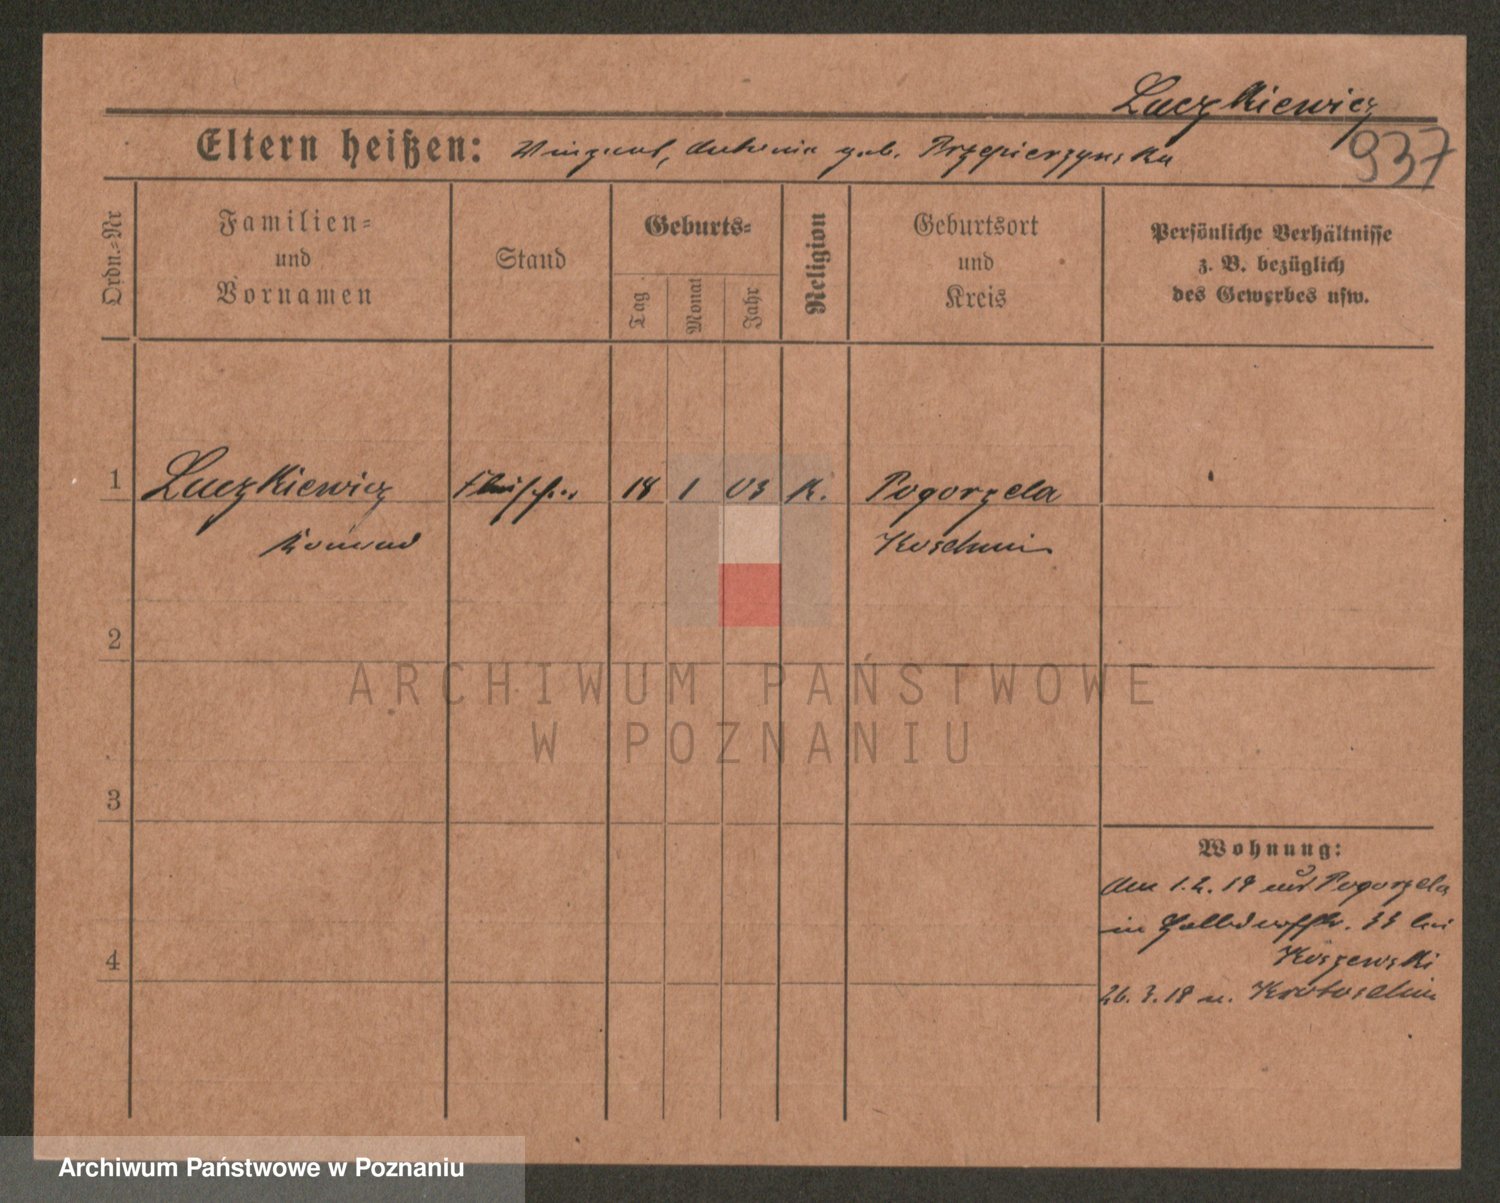 Luczkiewicz
937
Eltern heißen: Vinzent, Antonie geb. Przepierzynska
Ordn.-Nr
Familien-
und
Vornamen
Stand
Geburts-
Tag
Monat
Jahr
Religion
Geburtsort
und
Kreis
Persönliche Verhältnisse
z. B. bezüglich
des Gewerbes usw.
1 Luczkiewicz Fleischer 18 1 03 K. Pogorzela
Koschmin
2
3
4
Wohnung:
den 1.2.19 aus Pogorzela
in 33 bei
Koszewski
26.3.19 n. Krotoschin
ARCHIWUM PAŃSTWOWE
W POZNANIU
Archiwum Państwowe w Poznaniu